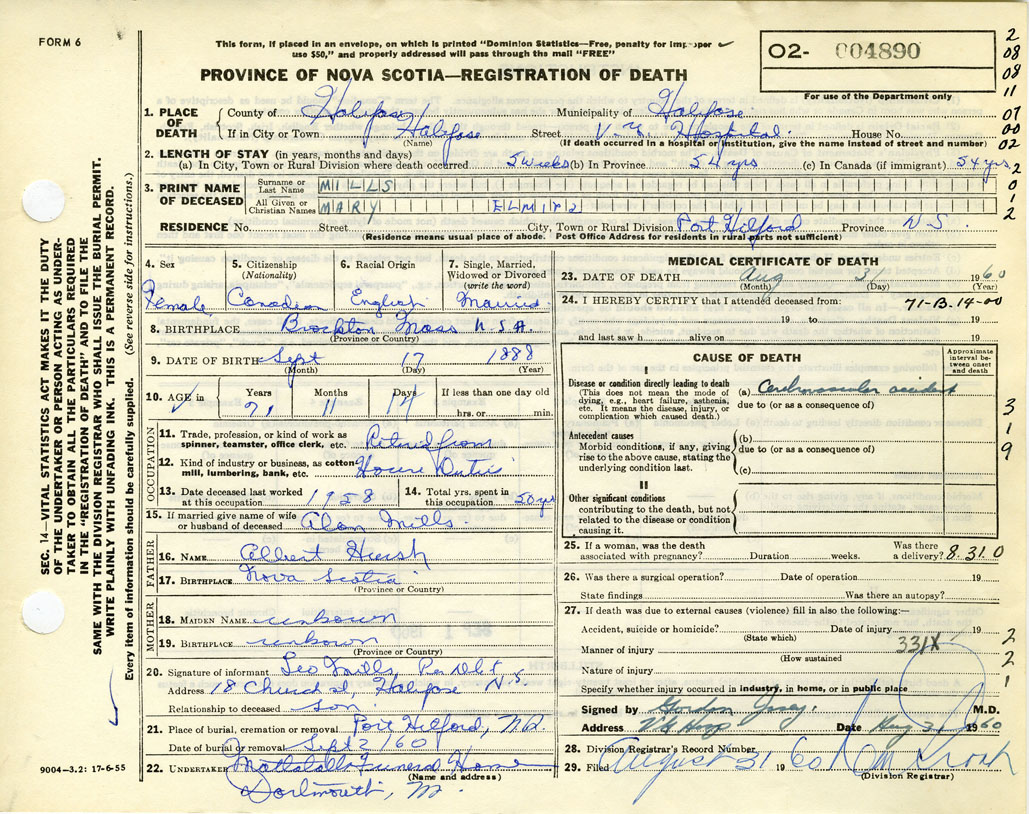 FORM 6
This form, if placed in an envelope, on which is printed "Dominion Statistics—Free, penalty for improper
use $50," and properly addressed will pass through the mail "FREE"
O2- 004890
For use of the Department only
PROVINCE OF NOVA SCOTIA—REGISTRATION OF DEATH
2
08
08
11
07
00
02
2
0
1
2
1. PLACE OF DEATH
County of Halifax Municipality of Halifax
If in City or Town Halifax Street V. G. Hospital. House No.
(Name) (If death occurred in a hospital or institution, give the name instead of street and number)
2. LENGTH OF STAY (in years, months and days)
(a) In City, Town or Rural Division where death occurred 5 weeks (b) In Province 54 yrs (c) In Canada (if immigrant) 54 yrs
3. PRINT NAME OF DECEASED
Surname or Last Name MILLS
All Given or Christian Names MARY ELMIRA
RESIDENCE No. Street City, Town or Rural Division Port Hilford Province N.S.
(Residence means usual place of abode. Post Office Address for residents in rural parts not sufficient)
4. Sex Female
5. Citizenship (Nationality) Canadian
6. Racial Origin English
7. Single, Married, Widowed or Divorced (write the word) Married
8. BIRTHPLACE Brockton Mass U.S.A.
(Province or Country)
9. DATE OF BIRTH Sept 17 1888
(Month) (Day) (Year)
10. AGE in Years 71 Months 11 Days 14 If less than one day old
hrs. or min.
OCCUPATION
11. Trade, profession, or kind of work as spinner, teamster, office clerk, etc. Retired from
12. Kind of industry or business, as cotton mill, lumbering, bank, etc. House Duties
13. Date deceased last worked at this occupation 1958
14. Total yrs. spent in this occupation 50 yrs
15. If married give name of wife or husband of deceased Alan Mills.
FATHER
16. NAME Albert
17. BIRTHPLACE Nova Scotia
(Province or Country)
MOTHER
18. MAIDEN NAME unknown
19. BIRTHPLACE unknown
(Province or Country)
20. Signature of informant Leo Mills Per
Address 18 Church st, Halifax N.S.
Relationship to deceased Son.
21. Place of burial, cremation or removal Port Hilford, N.S.
Date of burial or removal Sept 2/60
22. UNDERTAKER Mattatall Funeral Home
(Name and address)
Dartmouth, N.S.
9004—3.2: 17-6-55
MEDICAL CERTIFICATE OF DEATH
23. DATE OF DEATH Aug 31 1960
(Month) (Day) (Year)
24. I HEREBY CERTIFY that I attended deceased from:
71-B-14-00
19 to 19
and last saw h alive on 19
CAUSE OF DEATH
Approximate interval between onset and death
I
Disease or condition directly leading to death
(This does not mean the mode of dying, e.g., heart failure, asthenia, etc. It means the disease, injury, or complication which caused death.)
(a) Cerebrovascular accident
due to (or as a consequence of)
Antecedent causes
Morbid conditions, if any, giving rise to the above cause, stating the underlying condition last.
(b)
due to (or as a consequence of)
(c)
II
Other significant conditions
contributing to the death, but not related to the disease or condition causing it.
3
1
9
25. If a woman, was the death associated with pregnancy? Duration weeks. Was there a delivery? 8.31.0
26. Was there a surgical operation? Date of operation 19
State findings Was there an autopsy?
27. If death was due to external causes (violence) fill in also the following:—
Accident, suicide or homicide? Date of injury 19
(State which)
Manner of injury 331X
(How sustained
Nature of injury
Specify whether injury occurred in industry, in home, or in public place
2
2
1
Signed by Gordon M.D.
Address VG Hosp Date Aug 31 1960
28. Division Registrar's Record Number
29. Filed August 31 1960
(Division Registrar)
SEC. 14—VITAL STATISTICS ACT MAKES IT THE DUTY
OF THE UNDERTAKER OR PERSON ACTING AS UNDER-
TAKER TO OBTAIN ALL THE PARTICULARS REQUIRED
IN THE "REGISTRATION OF DEATH" AND TO FILE THE
SAME WITH THE DIVISION REGISTRAR WHO SHALL ISSUE THE BURIAL PERMIT.
WRITE PLAINLY WITH UNFADING INK. THIS IS A PERMANENT RECORD.
Every item of information should be carefully supplied. (See reverse side for instructions.)